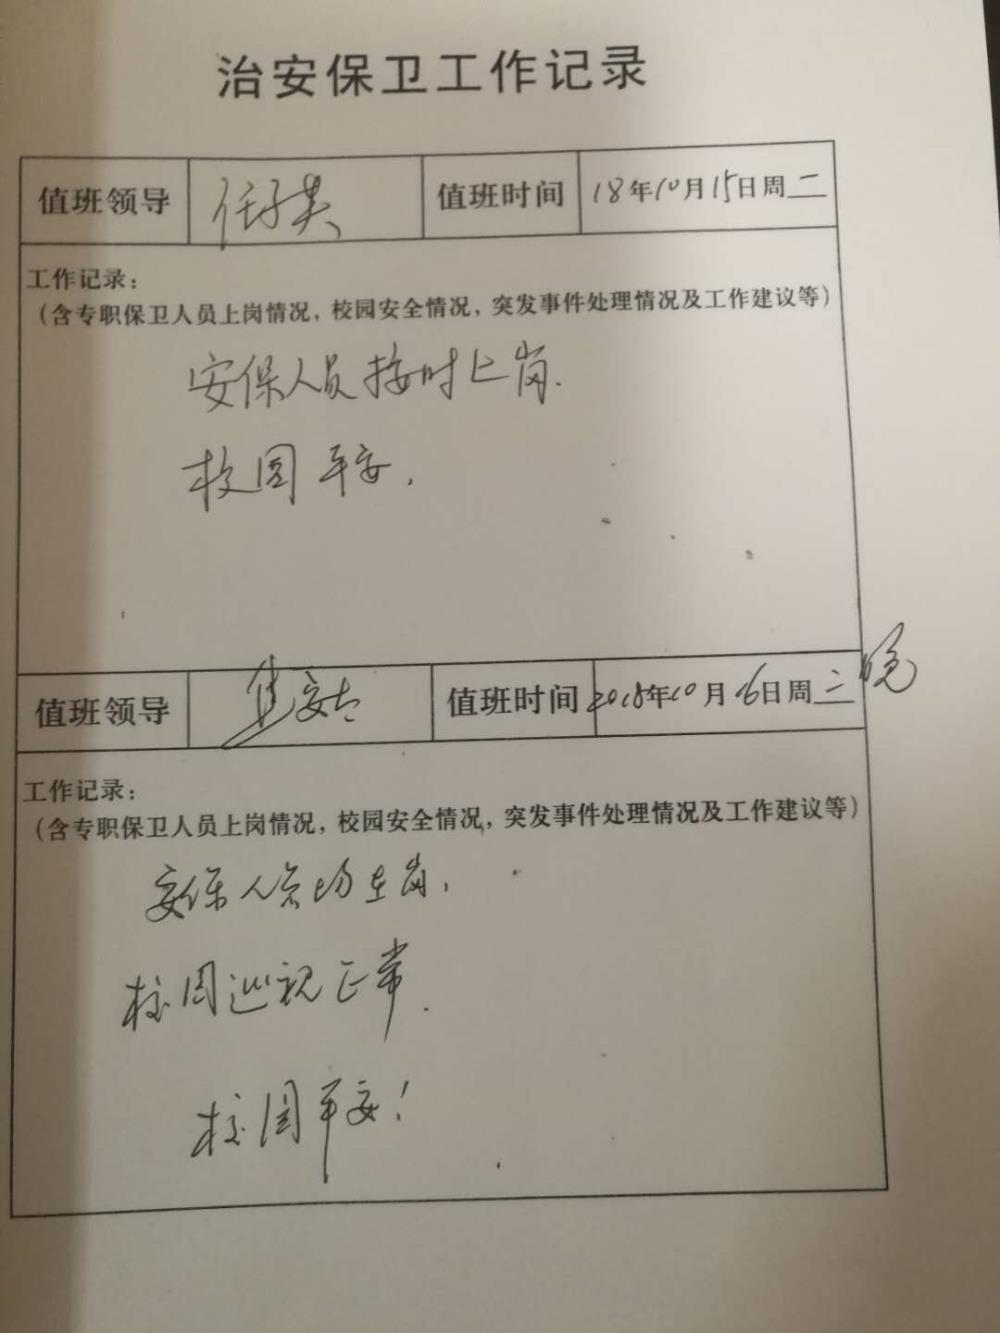 治安保卫工作记录
值班领导 任子英 值班时间 18年10月15日周二
工作记录：
（含专职保卫人员上岗情况，校园安全情况，突发事件处理情况及工作建议等）
安保人员按时上岗.
校园平安.
值班领导 值班时间 2018年10月16日周三晚
工作记录：
（含专职保卫人员上岗情况，校园安全情况，突发事件处理情况及工作建议等）
安保人员均在岗.
校园巡视正常.
校园平安！